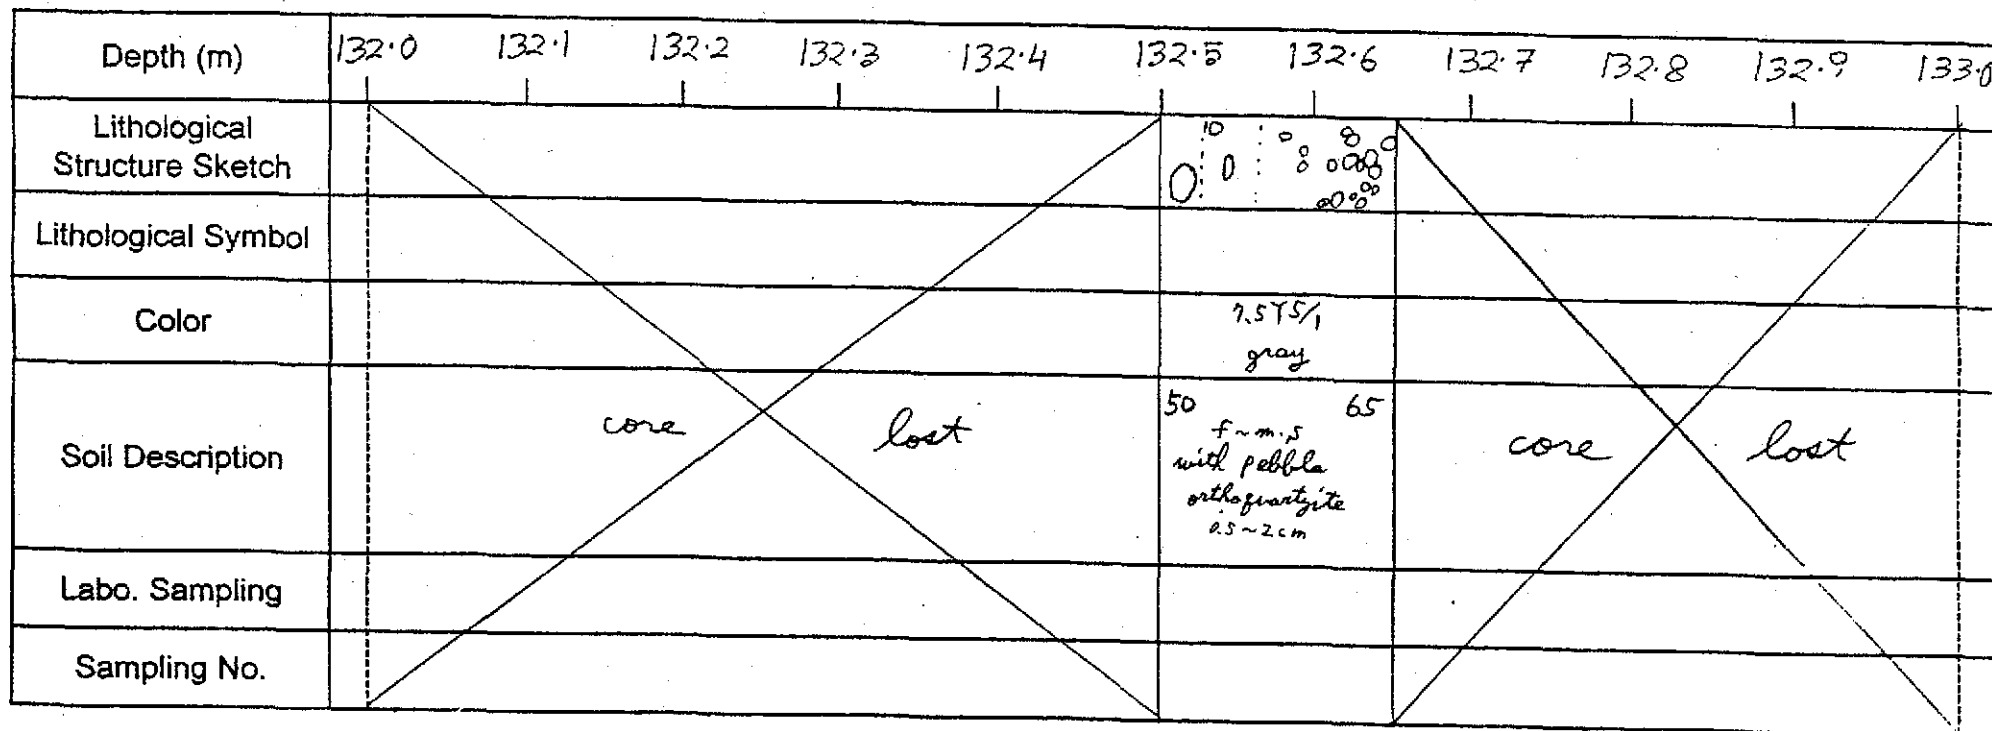 Depth (m) 132.0 132.1 132.2 132.3 132.4 132.5 132.6 132.7 132.8 132.9 133.0
Lithological
Structure Sketch
10
Lithological Symbol
Color
7.5Y5/1
gray
Soil Description
core lost
50 65
f~m.s
with pebble
orthoquartzite
0.5~2cm
core lost
Labo. Sampling
Sampling No.